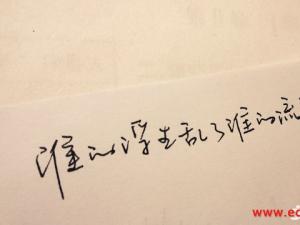 谁的浮生乱了谁的流
www.ec